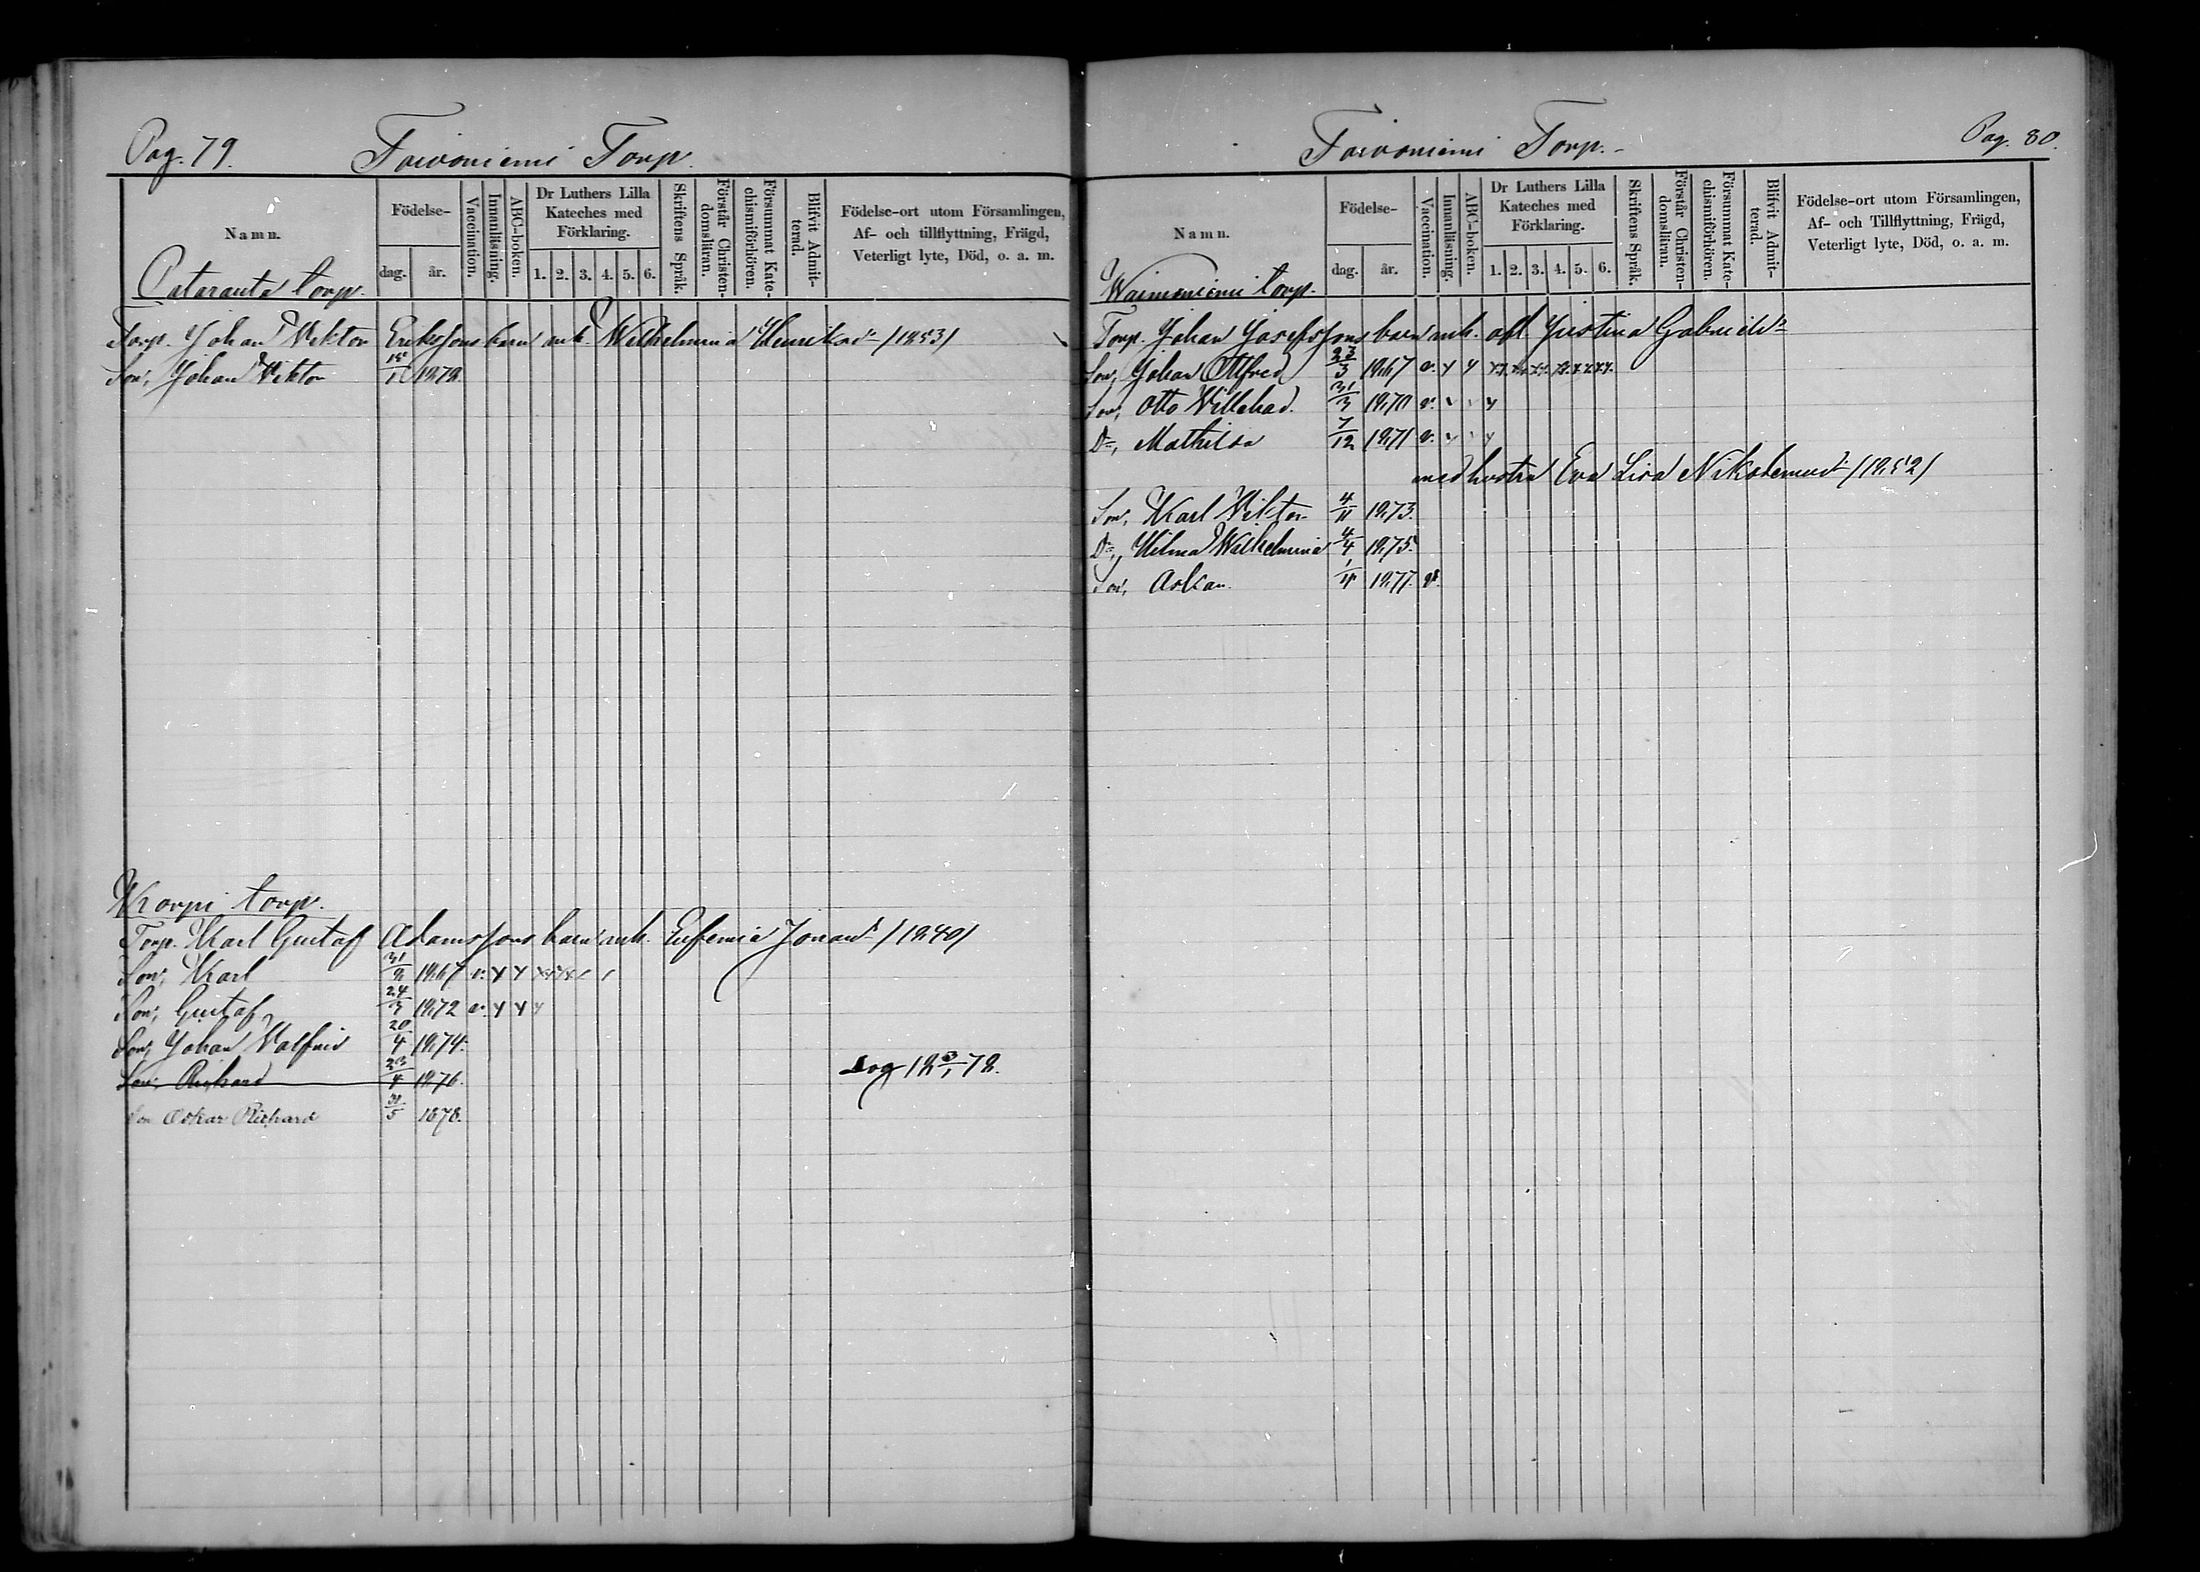 Pag. 79.
Toivoniemi Torp.
Namn.
Födelse-
dag.
år.
Vaccination.
Innanläsning.
ABC-boken.
Dr Luthers Lilla Kateches med Förklaring.
1. 2. 3. 4. 5. 6.
Skriftens Språk.
Förstår Christendomsläran.
Försummat Katechismiförhören.
Blifvit Admitterad.
Födelse-ort utom Församlingen,
Af- och tillflyttning, Frägd,
Veterligt lyte, Död, o. a. m.
Pataranta torp.
Torp. Johan Viktor Erikssons barn m.h. Wilhelmina Henriksd:r /1853/
Son, Johan Viktor 1878.
Korpi torp.
Torp. Karl Gustaf Adamssons barn m.h. Eufemia Jonasd:r /1840/
Son, Karl 31/8 1867 v.
Son, Gustaf 24/3 1872 v.
Son, Johan Valfrid 20/4 1874.
Son, Richard 23/4 1876. dog 18 3/1 78.
Son Oskar Richard 30/5 1878.
Toivoniemi Torp.
Pag. 80.
Namn.
Födelse-
dag.
år.
Vaccination.
Innanläsning.
ABC-boken.
Dr Luthers Lilla
Kateches med
Förklaring.
1. 2. 3. 4. 5. 6.
Skriftens Språk.
Förstår Christendomsläran.
Försummat Katechismiförhören.
Blifvit Admitterad.
Födelse-ort utom Församlingen,
Af- och Tillflyttning, Frägd,
Veterligt lyte, Död, o. a. m.
Wainioniemi torp.
Torp. Johan Josefssons barn m.h. afl. Justina Gabrielsd:r
Son, Johan Alfred 23/3 1867 v.
Son, Otto Villehad. 31/3 1870 v.
D:r, Mathilda 7/12 1871 v.
med hustru Eva Lisa Nikodemusd:r /1852/
Son, Karl Viktor 4/11 1873.
D:r, Hilma Wilhelmina 4/4 1875.
Son, Oskar. 1/4 1877. v.